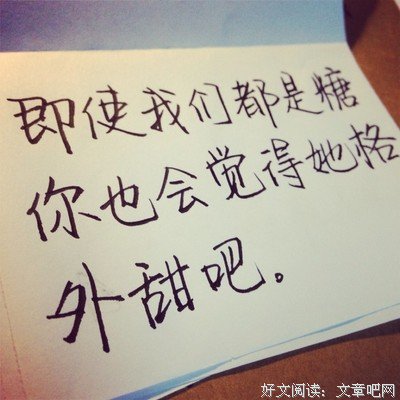 即使我们都是糖
你也会觉得她格
外甜吧。
好文阅读：文章吧网